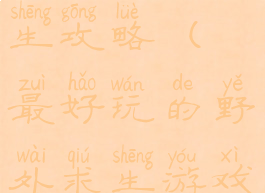 shēng gōng lüè
生 攻 略 （
zuì hǎo wán de yě
最 好 玩 的 野
wài qiú shēng yóu xì
外 求 生 游 戏